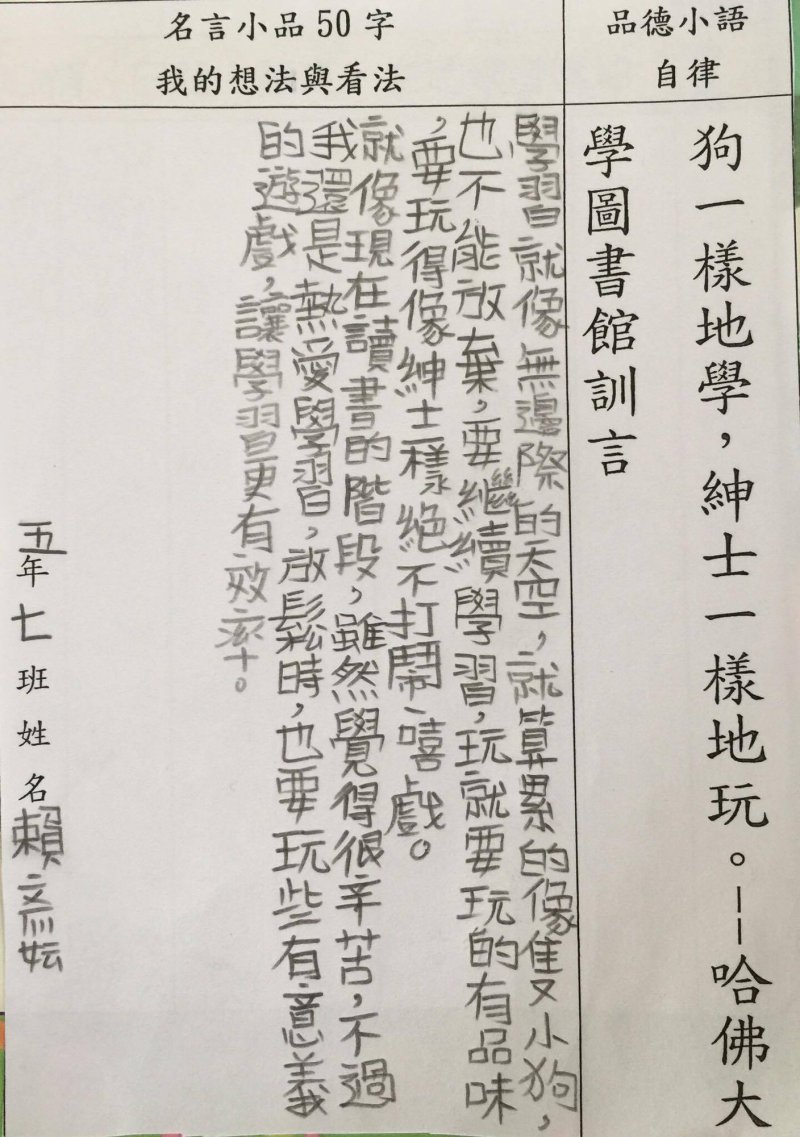 品德小語
自律
名言小品50字
我的想法與看法
狗一樣地學，紳士一樣地玩。--哈佛大
學圖書館訓言
學習就像無邊際的天空，就算累的像隻小狗，
也不能放棄，要繼續學習，玩就要玩的有品味
，要玩得像紳士一樣絕不打鬧嘻戲。
就像現在讀書的階段，雖然覺得很辛苦，不過
我還是熱愛學習，放鬆時，也要玩些有意義
的遊戲，讓學習更有效率。
五年七班姓名賴